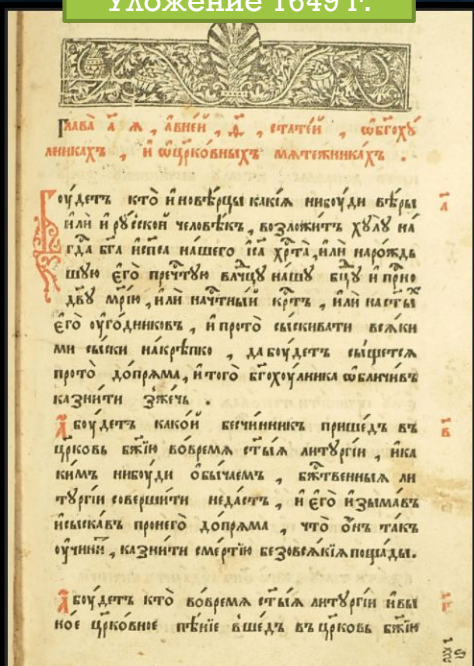 Уложение 1649 г.
Глава̀ а҃ я , а́вне́й , ѳ҃ , стате́й , ѡ҆бг҃охꙋ́
лникахъ , и҆ ѡ҆цр҃ко́вныхъ мѧте́жникахъ .
Боу́детъ кто̀ и҆нове́рцы какі́ѧ нибоу́ди вѣ́ры
и҆лѝ и҆рꙋ́сской человѣ́къ , возложи́тъ хꙋлꙋ̀ на́
гд҇а бг҃а и҆сп҃са на́шего і҆с҃а хр҇та̀ , и҆лѝ наро́ждь
шꙋю є҆го̀ пречт҇ꙋю влⷣчцꙋ на́шꙋ бц҃ꙋ и҆ при́сно
дв҃ꙋ мр҃і́ю , и҆лѝ начⷭ҇тны́й кр҇тъ , и҆лѝ насты́хъ
є҆го̀ оу҆го́дниковъ , и҆ прото̀ сы́скивати всѧ́ки
ми сы́ски накрѣ́пко , да боу́детъ сы́щетсѧ
прото̀ до́прѧма , и҆того̀ бг҃охоу́лника ѡ҆бличи́въ
казни́ти зже́чь .
а҃
А҆ боу́детъ како́й бесчи́нникъ прише́дъ въ
цр҃ковь бж҃їю во́времѧ ст҃ы́ѧ литꙋргі́и , и҆ка
ки́мъ нибоу́ди ѻ҆бы́чаемъ , бж҇твенныѧ ли
тꙋргі́и соверши́ти неда́стъ , и҆ є҆го̀ и҆зыма́въ
и҆сыска́въ пронего̀ до́прѧма , что̀ ѻ҆́нъ та́къ
оу҆чини́тъ , казни́ти сме́ртїю безовсѧ́кїѧ поща́ды .
в҃
А҆ боу́детъ кто̀ во́времѧ ст҃ы́ѧ литꙋргі́и и҆вы
ное цр҃ко́вное пѣ́нїе вше́дъ въ цр҃ковь бж҃їю